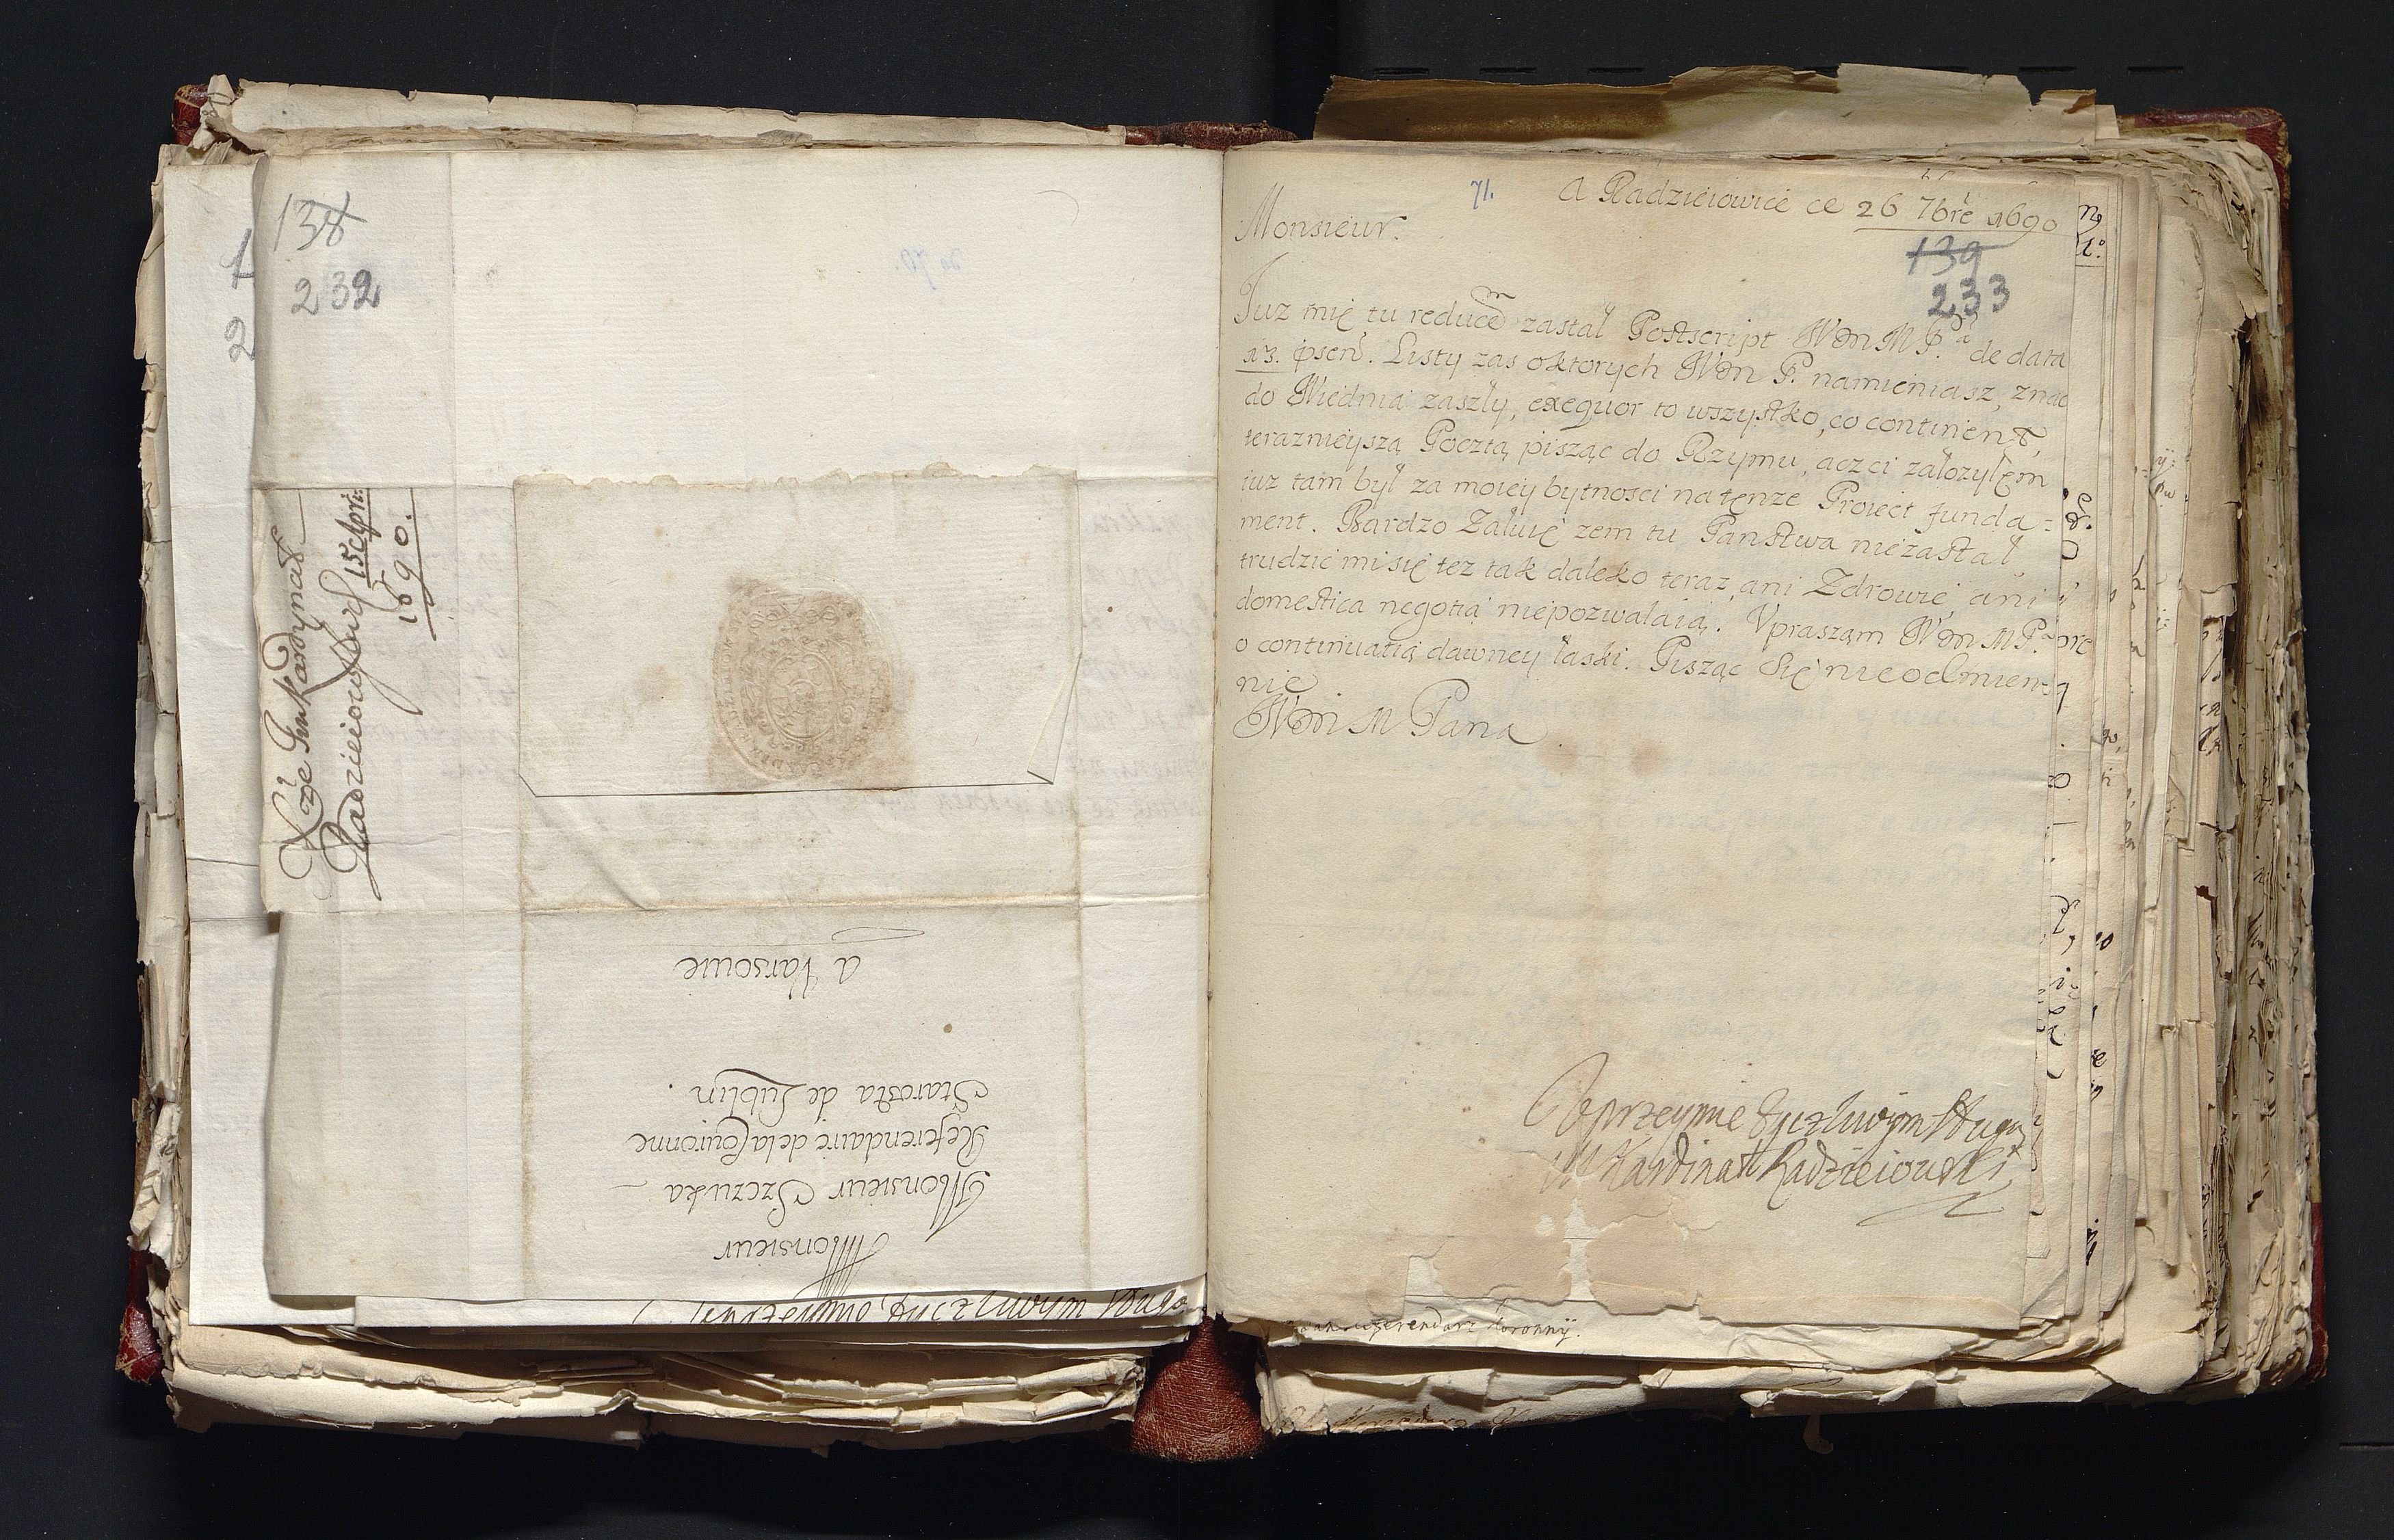 138
232
do 70.
Xże Jm Kardynał
Radzieiowski 15 Apri:
1690.
Monsieur
Monsieur Szczuka
Referendaire de la Couronne
Starosta de Lublin.
a Varsovie
71.
A Radzieiowice ce 26 7bre 1690
Monsieur.
139
233
Iuz mię tu reducem zastał Postscript WM M Pa de data
13. psen. Listy zas o ktorych WM P. namieniasz, znac
do Wiednia zaszły, exequor to wszystko, co continent,
teraznieyszą Pocztą pisząc do Rzymu, aczci załozyłem
iuz tam był za moiey bytnosci na tenze Proiect funda=
ment. Bardzo Załuię zem tu Panstwa niezastał,
trudzic mi się tez tak daleko teraz, ani Zdrowie, ani
domestica negotia niepozwalaią. Vpraszam WM M Pa
o continuatią dawney łaski. Pisząc Się nieodmien=
nie
WM M Pana
Uprzeymie zyczliwym sługą
M Kardinał Radzieiowski
Referendarz Koronny.